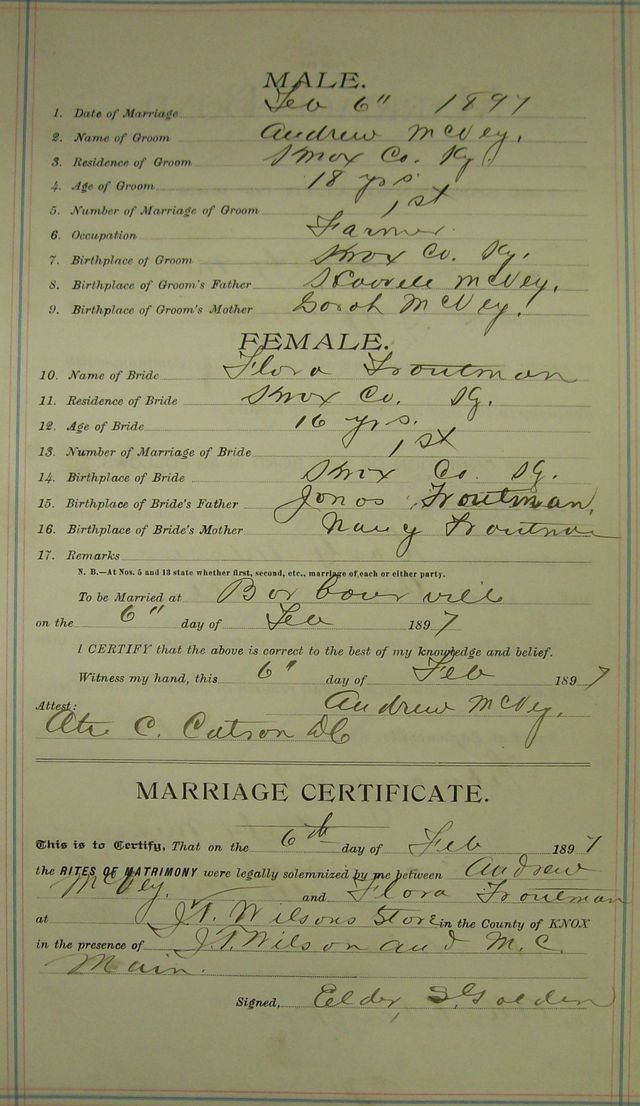 MALE.
1. Date of Marriage Feb 6" 1897
2. Name of Groom Andrew McVey.
3. Residence of Groom Knox Co. Ky
4. Age of Groom 18 yrs.
5. Number of Marriage of Groom 1st
6. Occupation Farmer.
7. Birthplace of Groom Knox Co. Ky.
8. Birthplace of Groom's Father McVey.
9. Birthplace of Groom's Mother Sarah McVey.
FEMALE.
10. Name of Bride Flora Troutman
11. Residence of Bride Knox Co. Ky.
12. Age of Bride 16 yrs.
13. Number of Marriage of Bride 1st
14. Birthplace of Bride Knox Co. Ky.
15. Birthplace of Bride's Father Jonas Troutman,
16. Birthplace of Bride's Mother Nancy Troutman
17. Remarks
N. B.—At Nos. 5 and 13 state whether first, second, etc., marriage of each or either party.
To be Married at Barbourville
on the 6" day of Feb 1897
I CERTIFY that the above is correct to the best of my knowledge and belief.
Witness my hand, this 6" day of Feb 1897
Attest: Andrew McVey.
C. Catson DC
MARRIAGE CERTIFICATE.
This is to Certify, That on the 6th day of Feb 1897
the RITES OF MATRIMONY were legally solemnized by me between Andrew
McVey. and Flora Troutman
at J.T. Wilsons Store in the County of KNOX
in the presence of J.T. Wilson and M. C.
Main.
Signed, Elder, Golden